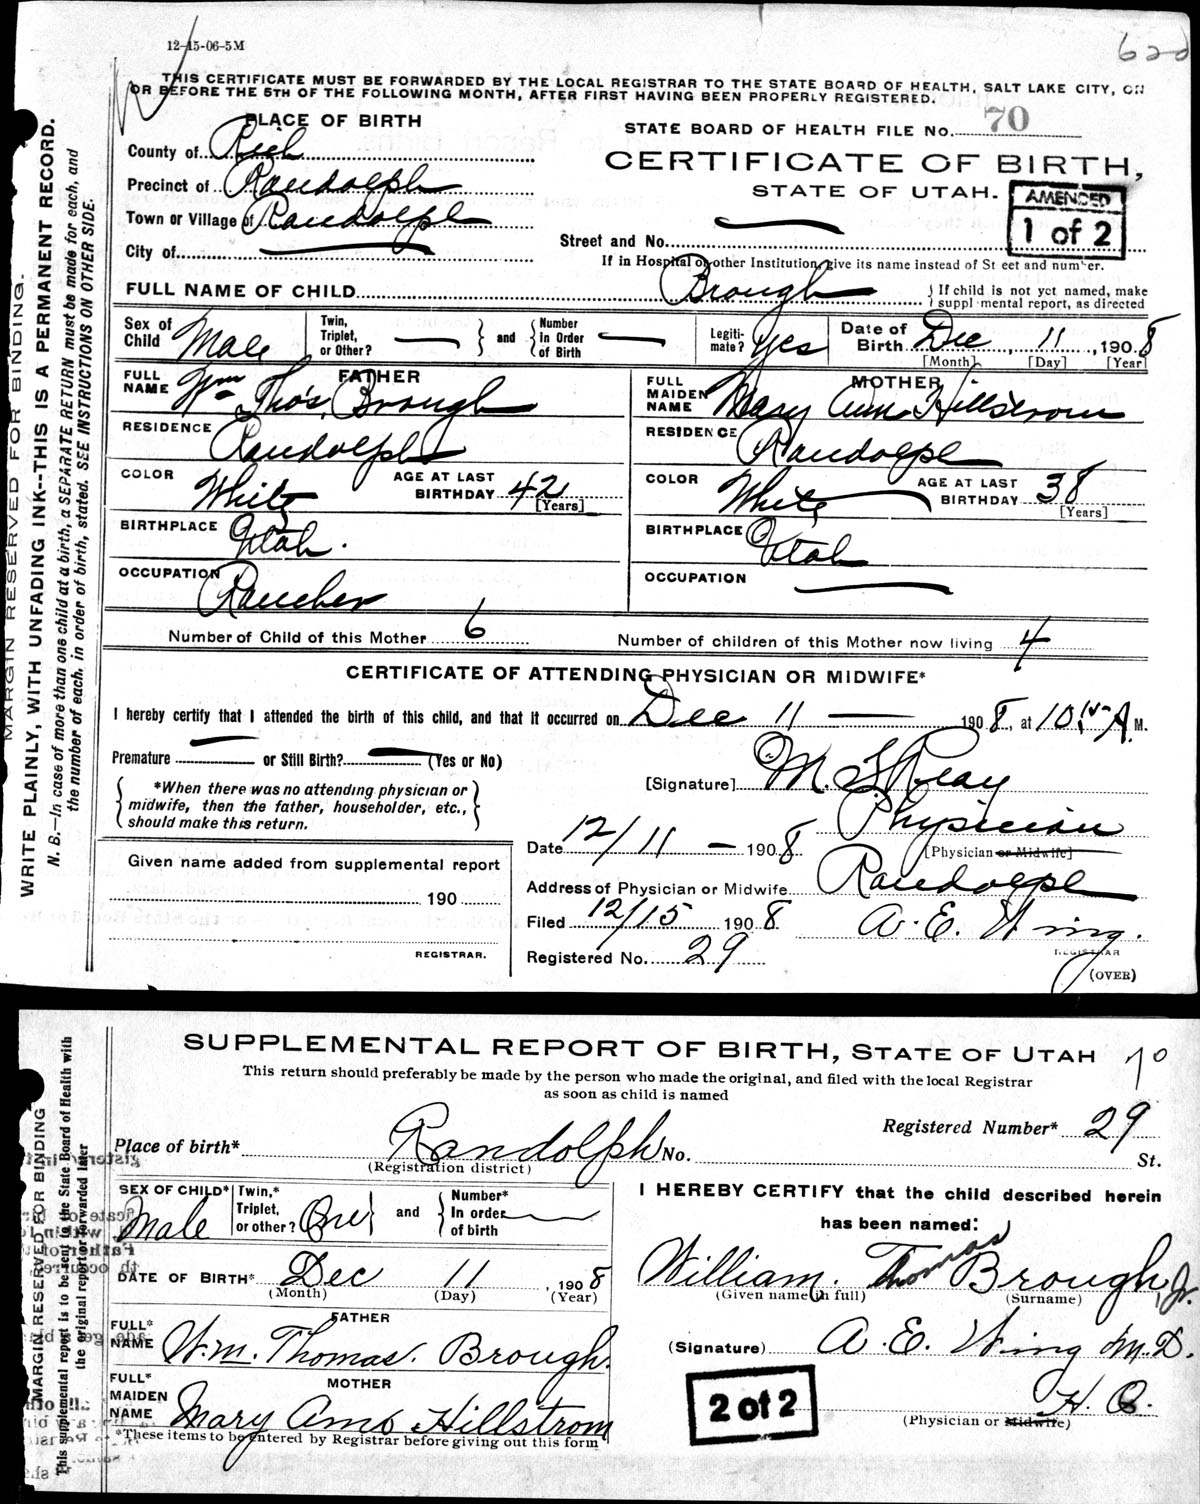 12-15-06-5M
62d
THIS CERTIFICATE MUST BE FORWARDED BY THE LOCAL REGISTRAR TO THE STATE BOARD OF HEALTH, SALT LAKE CITY, ON
OR BEFORE THE 5TH OF THE FOLLOWING MONTH, AFTER FIRST HAVING BEEN PROPERLY REGISTERED.
PLACE OF BIRTH
STATE BOARD OF HEALTH FILE No. 70
County of Rich
CERTIFICATE OF BIRTH,
Precinct of Randolph
STATE OF UTAH.
AMENDED
1 of 2
Town or Village of Randolph
Street and No. —
City of —
If in Hospital or other Institution, give its name instead of St eet and number.
FULL NAME OF CHILD Brough
{ If child is not yet named, make
suppl mental report, as directed
Sex of Child Male
Twin, Triplet, or Other? — } and { Number In Order of Birth —
Legiti-mate? Yes
Date of Birth Dec 11, 1908
[Month] [Day] [Year]
FATHER
FULL NAME Wm Thos. Brough
MOTHER
FULL MAIDEN NAME Mary Ann Hillstrom
RESIDENCE Randolph
RESIDENCE Randolph
COLOR White AGE AT LAST BIRTHDAY 42 [Years]
COLOR White AGE AT LAST BIRTHDAY 38 [Years]
BIRTHPLACE Utah.
BIRTHPLACE Utah
OCCUPATION Rancher
OCCUPATION —
Number of Child of this Mother 6
Number of children of this Mother now living 4
CERTIFICATE OF ATTENDING PHYSICIAN OR MIDWIFE*
I hereby certify that I attended the birth of this child, and that it occurred on Dec 11 — 1908, at 10 A.M.
Premature — or Still Birth? — (Yes or No)
[Signature] M. S. Reay
*When there was no attending physician or
midwife, then the father, householder, etc.,
should make this return.
Physician
Date 12/11 — 1908
[Physician or Midwife]
Given name added from supplemental report
190
REGISTRAR.
Address of Physician or Midwife Randolph
Filed 12/15 1908 A. E. Wing.
REGISTRAR
Registered No. 29
(OVER)
MARGIN RESERVED FOR BINDING.
WRITE PLAINLY, WITH UNFADING INK--THIS IS A PERMANENT RECORD.
N. B.—In case of more than one child at a birth, a SEPARATE RETURN must be made for each, and
the number of each, in order of birth, stated. SEE INSTRUCTIONS ON OTHER SIDE.
SUPPLEMENTAL REPORT OF BIRTH, STATE OF UTAH 70
This return should preferably be made by the person who made the original, and filed with the local Registrar
as soon as child is named
Registered Number* 29
Place of birth* Randolph No. St.
(Registration district)
SEX OF CHILD* Male
Twin,* Triplet, or other? One } and { Number* In order of birth —
I HEREBY CERTIFY that the child described herein
has been named:
DATE OF BIRTH* Dec 11, 1908
(Month) (Day) (Year)
William Thomas Brough, Jr.
(Given name in full) (Surname)
FATHER
FULL* NAME Wm. Thomas. Brough.
(Signature) A. E. Wing M.D.
MOTHER
FULL* MAIDEN NAME Mary Ann Hillstrom
2 of 2
H. O.
(Physician or Midwife)
*These items to be entered by Registrar before giving out this form
MARGIN RESERVED FOR BINDING
This supplemental report is to be sent to the State Board of Health with
the original report or forwarded later